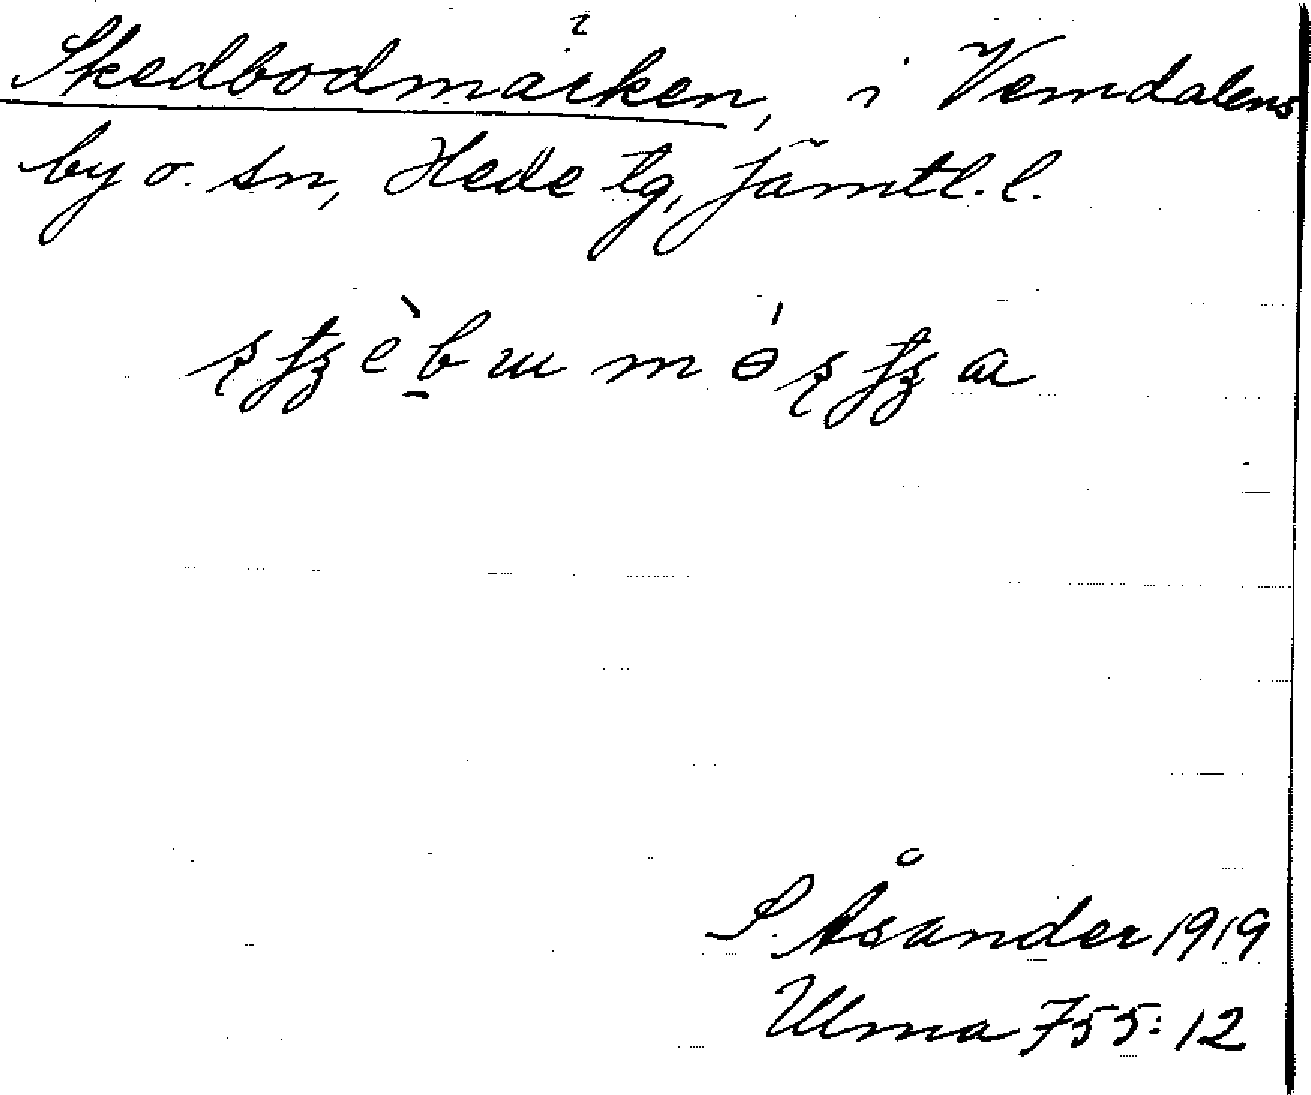 Skedbodmärken, i Vemdalens
by o. sn, Hede tg, Jämtl. l.
S. Åsander 1919
Ulma 755:12